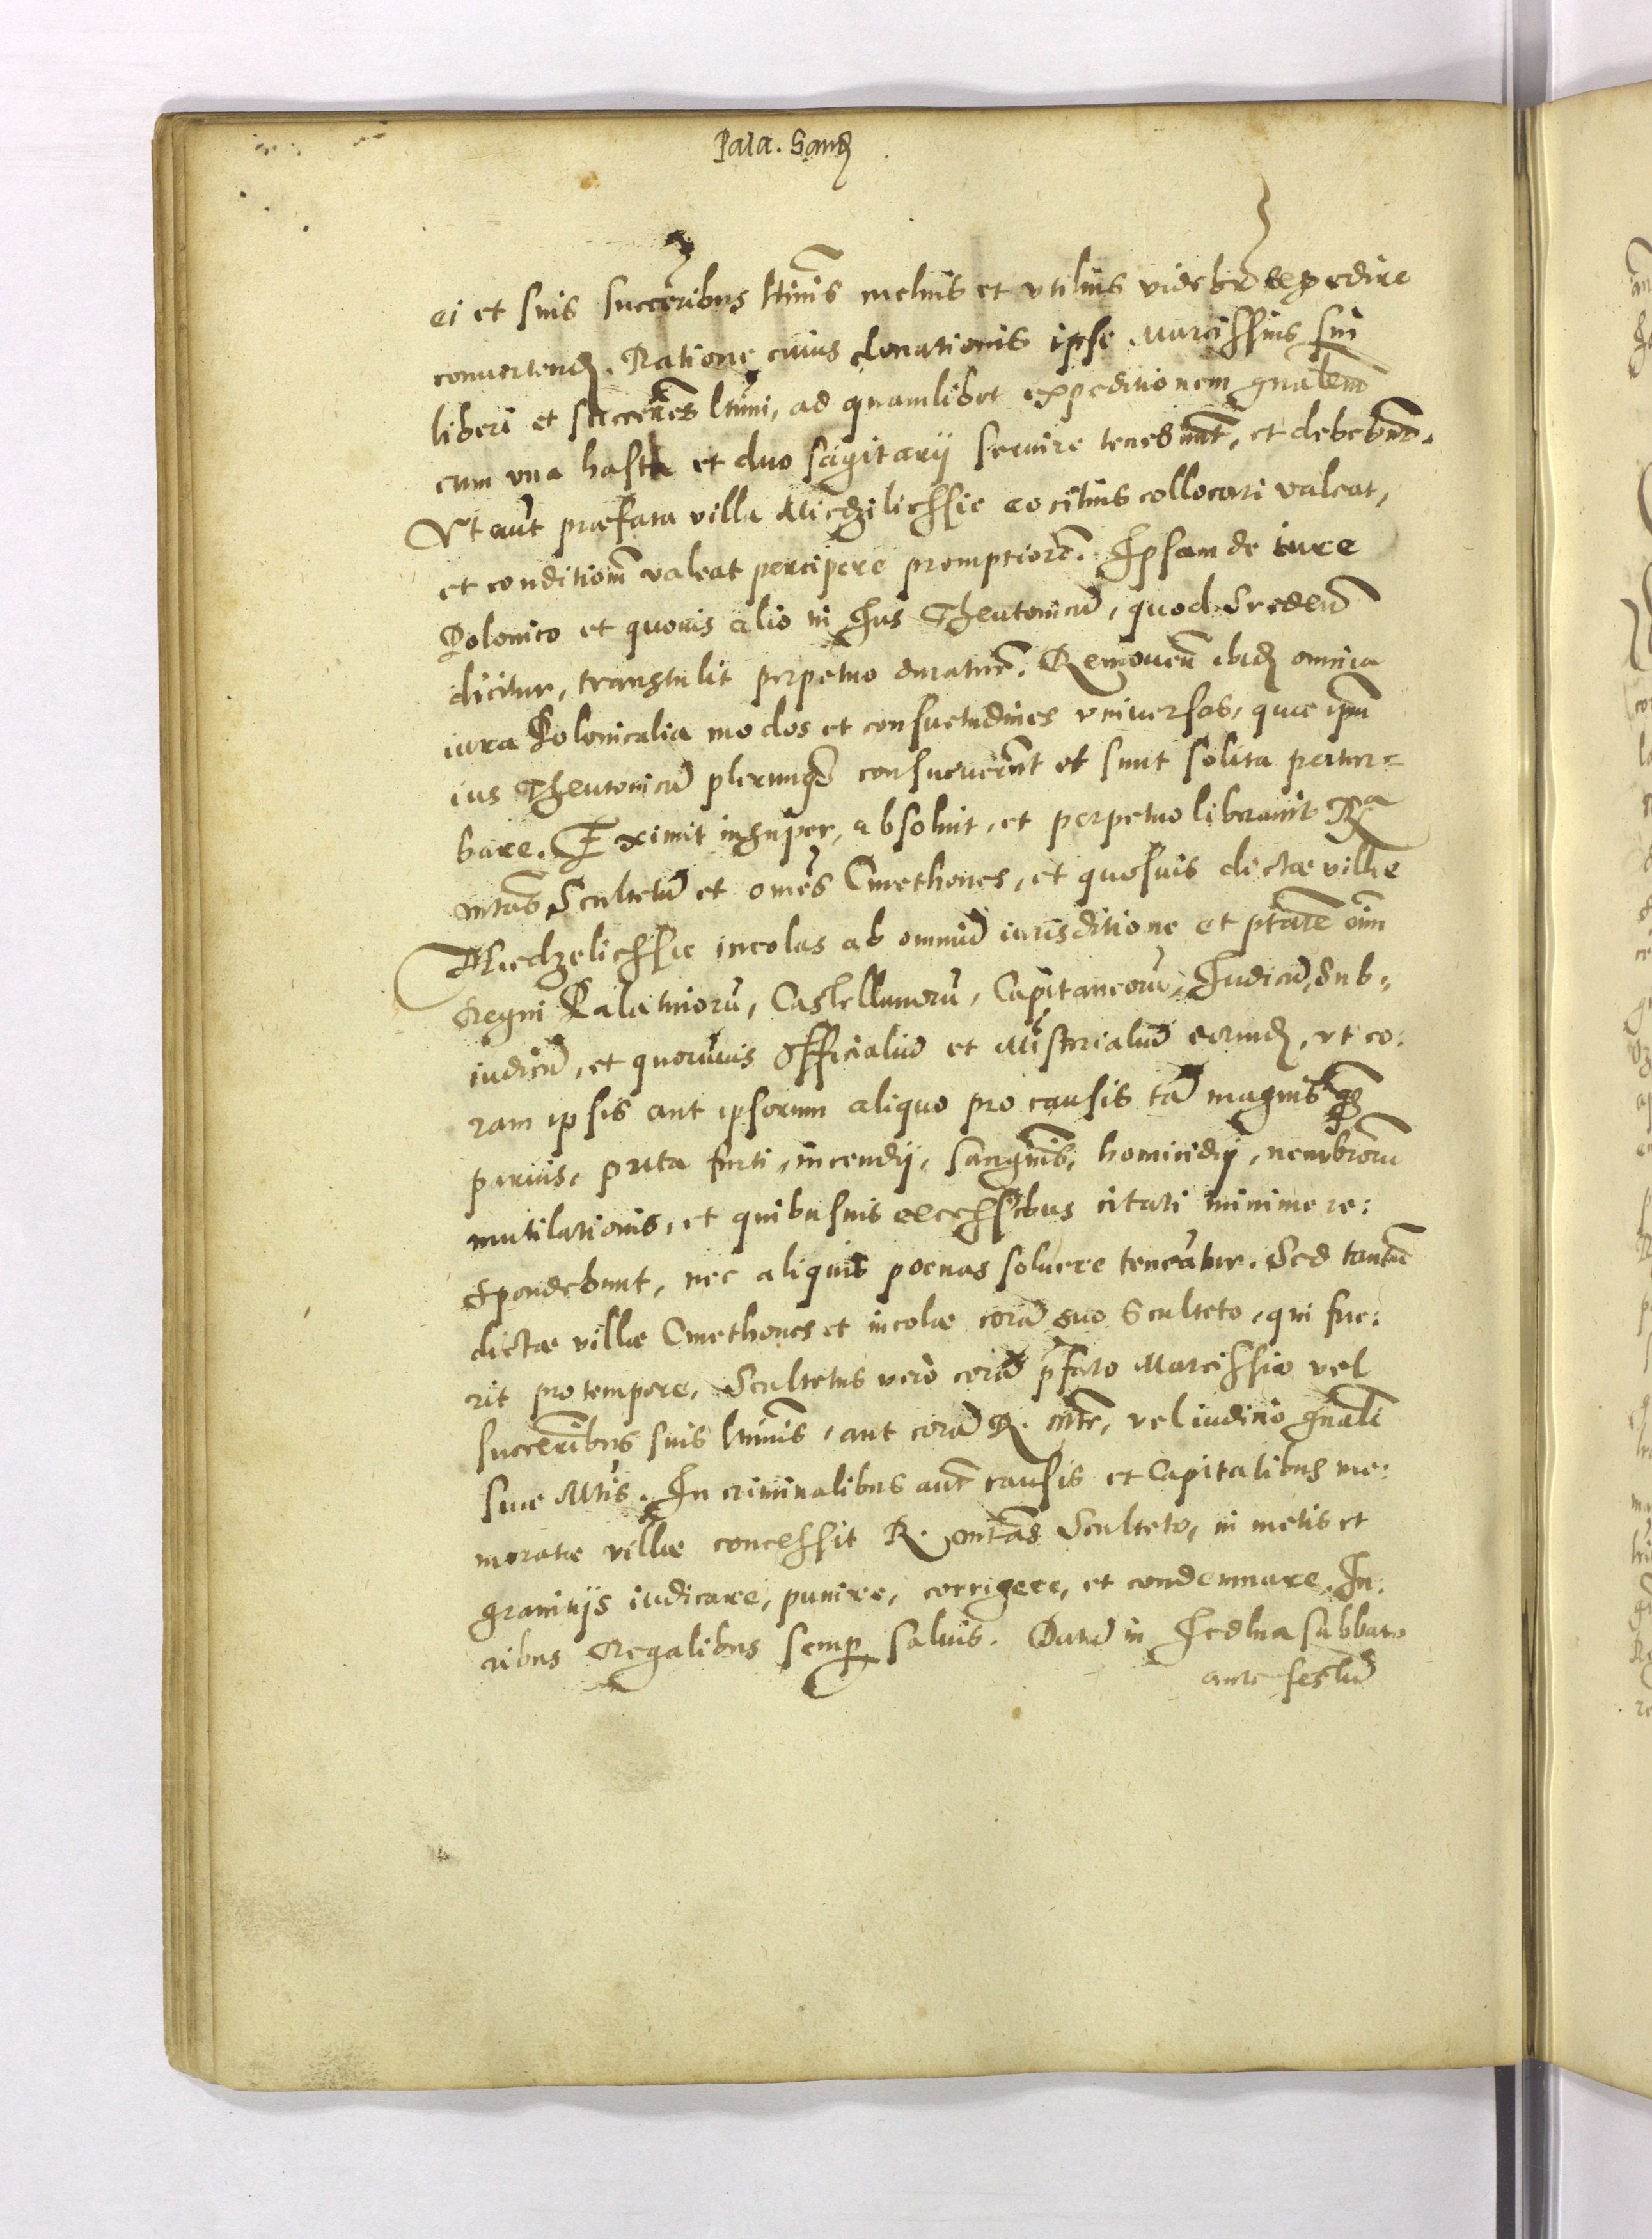 Pala. Sand
ei et suis succeribus ltimis melius et vtilius videbr expedire
conuertend. Ratione cuius donationis ipse Narcissius sui
liberi et succeres ltimi, ad quamlibet expeditionem gnalem
cum vna hasta et duo sagitarij seruire tenebunt, et debebunt.
Vt aut praefata villa Miedzilichssie eo citius collocari valeat,
et conditiom valeat percipere promptiore. Ipsam de iure
Polonico et quouis alio in Ius Theutonicu, quod Sreden
dicitur, transtulit perpetuo duratur. Remouen ibid omnia
iura Polonicalia modos et consuetudines vniuersas, quae ipm
ius Theutonicu plerunque consueuerut et sunt solita pertur=
bare. Eximit insuper, absoluit, et perpetuo liberauit Ra
mtas Scultetu et omes Cmethones, et quosuis dictae villae
Miedzelichssie incolas ab omniu iurisditione et ptate oim
Regni Palatinoru, Castellanoru, Capitaneoru, Iudicu, Sub=
iudicu, et quoruuis Officialiu et Misterialiu eorund, vt co:
ram ipsis aut ipsorum aliquo pro causis ta magnis qm
paruis, puta furti, incendij, sanguis, homicidij, membroru
mutilationis, et quibusuis excessibus citati minime re:
spondebunt, nec aliquis poenas soluere teneatur. Sed tantum
dictae villae Cmethones et incolae cora suo Sculteto, qui fue:
rit pro tempore, Scultetus vero cora pfato Narcissio vel
succeribus suis ltimis, aut cora R. mte, vel iudicio gnali
suae Mtis. In criminalibus aut causis et Capitalibus me:
moratae villae concessit R. mtas Sculteto, in metis et
granitijs iudicare, punire, corrigere, et condemnare. Iu:
ribus Regalibus semp saluis. Datu in Iedlna sabbato
ante festu